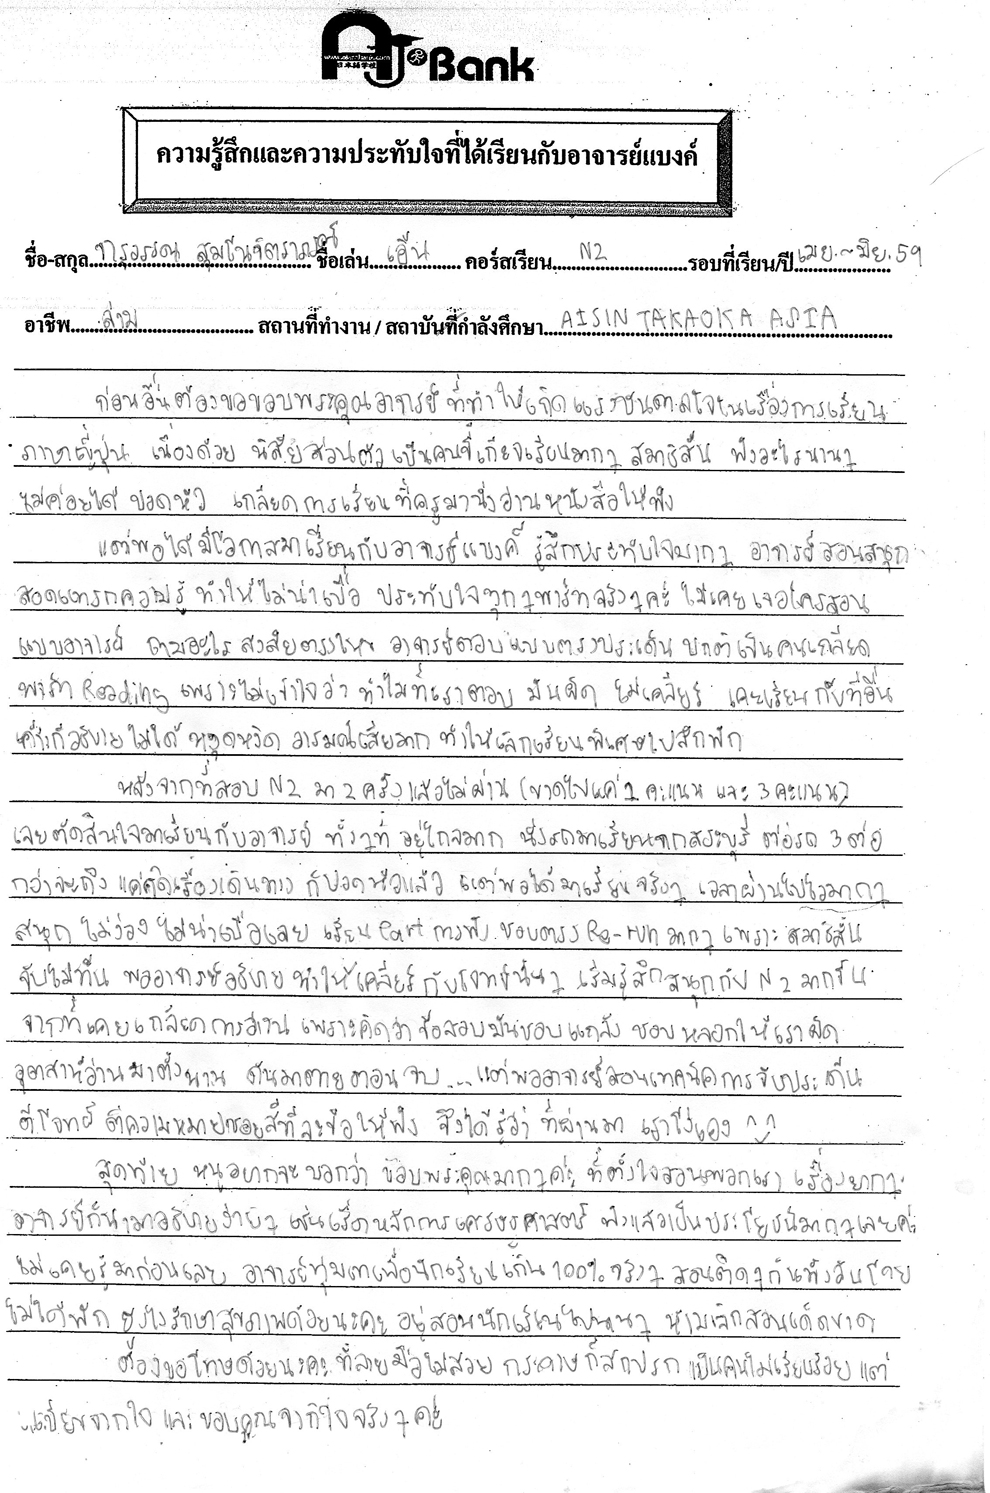 www.akcarnbank.com
日本語学校
AJ Bank
ความรู้สึกและความประทับใจที่ได้เรียนกับอาจารย์แบงค์
ชื่อ-สกุล จารุวรรณ ชื่อเล่น เอิ๊น คอร์สเรียน N2 รอบที่เรียน/ปี เมย.~มิย. 59
อาชีพ ล่าม สถานที่ทำงาน / สถาบันที่กำลังศึกษา AISIN TAKAOKA ASIA
ก่อนอื่นต้องขอขอบพระคุณอาจารย์ ที่ทำให้เกิดแรงบันดาลใจในเรื่องการเรียน
ภาษาญี่ปุ่น เนื่องด้วย นิสัยส่วนตัวเป็นคนขี้เกียจเรียนมากๆ สมาธิสั้น ฟังอะไรนานๆ
ไม่ค่อยได้ ปวดหัว เกลียดการเรียนที่ครูมานั่งอ่านหนังสือให้ฟัง
แต่พอได้มีโอกาสมาเรียนกับอาจารย์แบงค์ รู้สึกประทับใจมากๆ อาจารย์สอนสนุก
สอดแทรกความรู้ ทำให้ไม่น่าเบื่อ ประทับใจทุกๆพาร์ทจริงๆค่ะ ไม่เคยเจอใครสอน
แบบอาจารย์ ถามอะไร สงสัยตรงไหน อาจารย์ตอบแบบตรงประเด็น ปกติเป็นคนเกลียด
พาร์ท Reading เพราะไม่เข้าใจว่า ทำไมที่เราตอบ มันผิด ไม่เคลียร์ เคยเรียนกับที่อื่น
เค้าก็อธิบายไม่ได้ หงุดหงิด อารมณ์เสียมาก ทำให้เลิกเรียนพิเศษไปสักพัก
หลังจากที่สอบ N2 มา 2 ครั้งแล้วไม่ผ่าน (ขาดไปแค่ 1 คะแนน และ 3 คะแนน)
เลยตัดสินใจมาเรียนกับอาจารย์ ทั้งๆที่ อยู่ไกลมาก นั่งรถมาเรียนจากสระบุรี ต่อรถ 3 ต่อ
กว่าจะถึง แค่คิดเรื่องเดินทาง ก็ปวดหัวแล้ว แต่พอได้มาเรียนจริงๆ เวลาผ่านไปไวมากๆ
สนุก ไม่ง่วง ไม่น่าเบื่อเลย เรียน Part การฟัง ชอบตรง Re-run มากๆ เพราะ สมาธิสั้น
จับไม่ทัน พออาจารย์อธิบาย ทำให้เคลียร์กับโจทย์นั้นๆ เริ่มรู้สึกสนุกกับ N2 มากขึ้น
จากที่เคยเกลียดการอ่าน เพราะคิดว่า ข้อสอบมันชอบแกล้ง ชอบหลอกให้เราผิด
อุตสาห์อ่านมาตั้งนาน ดันมาตายตอนจบ... แต่พออาจารย์สอนเทคนิคการจับประเด็น
ตีโจทย์ ตีความหมายช้อยส์ทีละข้อให้ฟัง จึงได้รู้ว่า ที่ผ่านมา เราโง่เอง
สุดท้าย หนูอยากจะบอกว่า ขอบพระคุณมากๆค่ะ ที่ตั้งใจสอนพวกเรา เรื่องยากๆ
อาจารย์ก็นำมาอธิบายง่ายๆ เช่นเรื่องหลักการเศรษฐศาสตร์ ฟังแล้วเป็นประโยชน์มากๆเลยค่ะ
ไม่เคยรู้มาก่อนเลย อาจารย์ทุ่มเทเพื่อนักเรียนเกิน 100% จริงๆ สอนติดๆกันทั้งวันโดย
ไม่ได้พัก ยังไงรักษาสุขภาพด้วยนะคะ อยู่สอนนักเรียนไปนานๆ ห้ามเลิกสอนเด็ดขาด
ต้องขอโทษด้วยนะคะ ที่ลายมือไม่สวย กระดาษก็สกปรก เป็นคนไม่เรียบร้อย แต่
เขียนจากใจ และ ขอบคุณจากใจจริงๆ ค่ะ